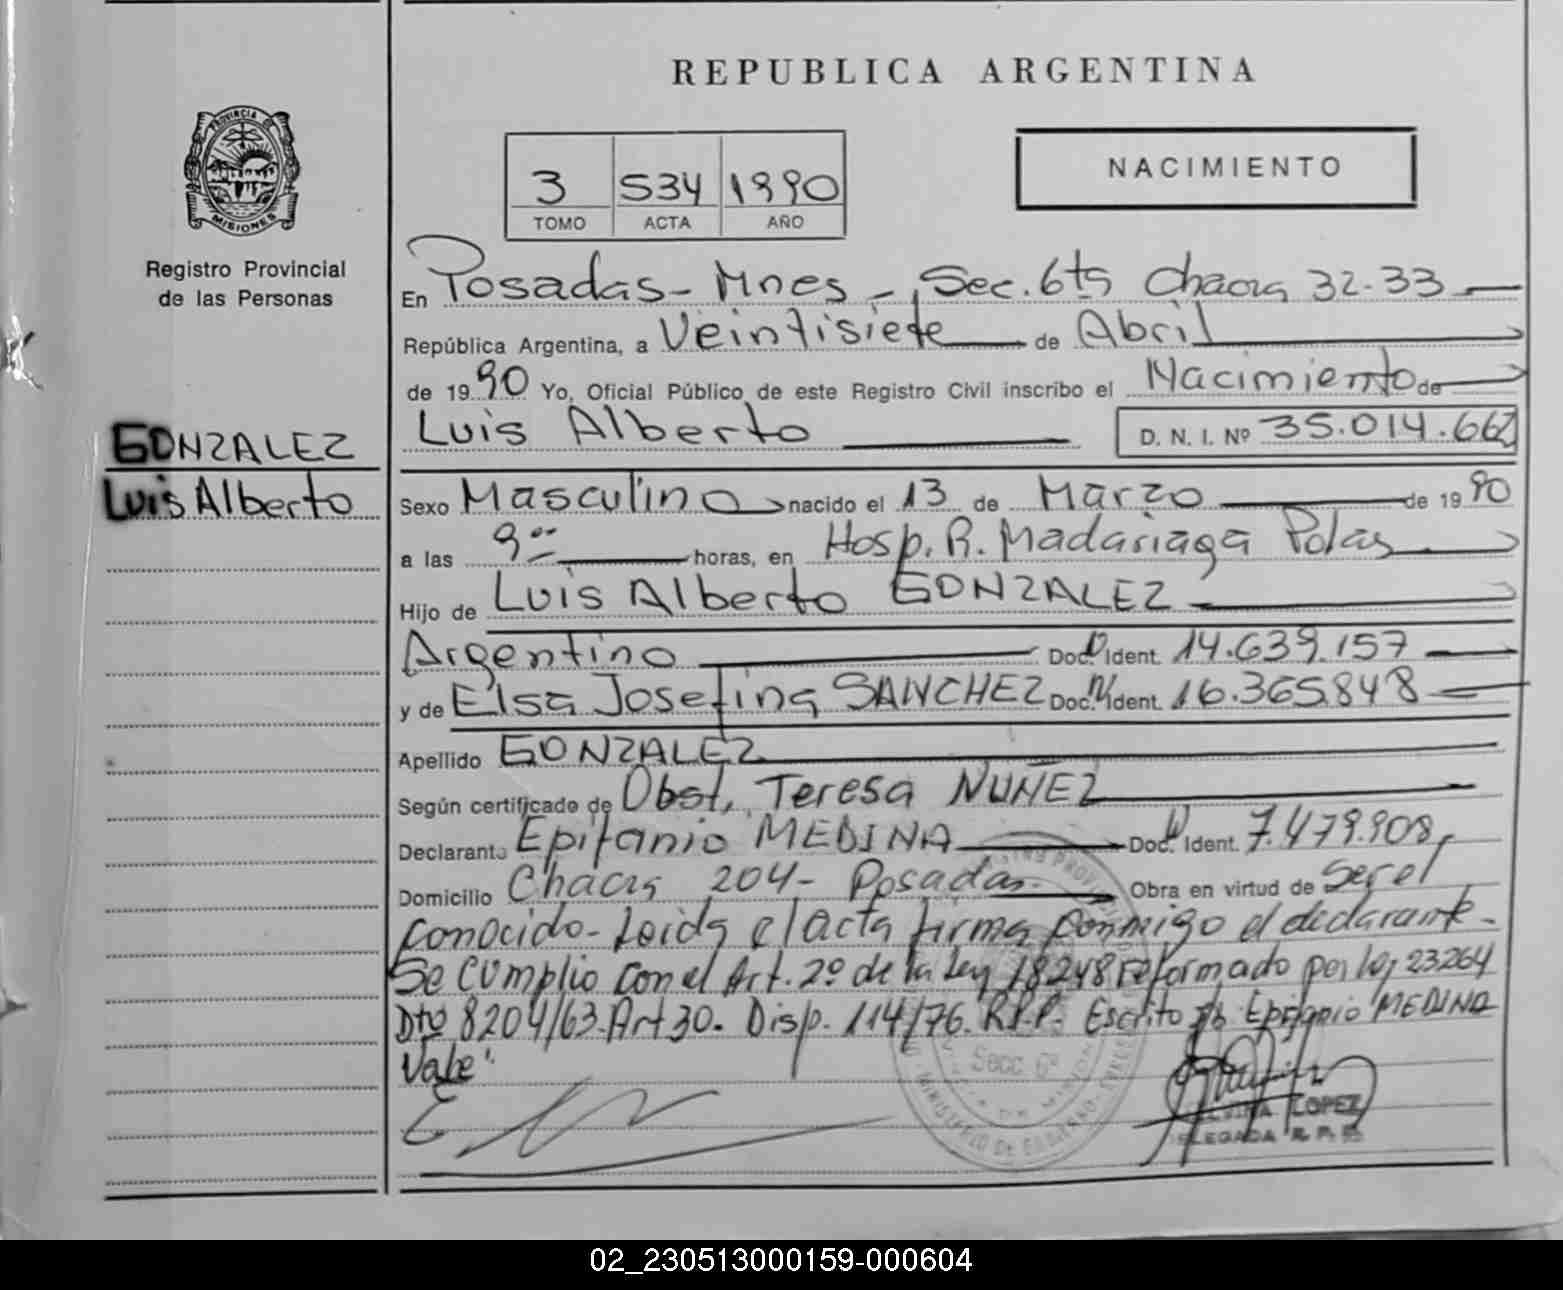 REPUBLICA ARGENTINA
PROVINCIA DE
MISIONES
Registro Provincial
de las Personas
3 534 1990
TOMO ACTA AÑO
NACIMIENTO
En Posadas - Mnes -, Sec. 6ta Chacra 32-33
República Argentina, a Veintisiete de Abril
de 1990 Yo, Oficial Público de este Registro Civil inscribo el Nacimiento de
Luis Alberto D. N. I. Nº 35.014.662
GONZALEZ
Luis Alberto
Sexo Masculino nacido el 13 de Marzo de 1990
a las 9 horas, en Hosp. R. Madariaga Pdas
Hijo de Luis Alberto GONZALEZ
Argentino Doc. Ident. 14.639.157
y de Elsa Josefina SANCHEZ Doc. Ident. 16.365.848
Apellido GONZALEZ
Según certificado de Obst. Teresa NUÑEZ
Declarante Epifanio MEDINA Doc. Ident. 7.479.908
Domicilio Chacra 204 - Posadas - Obra en virtud de Ser el
conocido - Leida el Acta firma conmigo el declarante -
Se cumplio con el Art. 2º de la Ley 18248 reformado por ley 23264
Dto 8204/63-Art 30. Disp. 114/76. R.P.P. Escrito Epifanio MEDINA
Vale"
Secc. 6ª
LOPEZ
DELEGADA R. P. P.
02_230513000159-000604